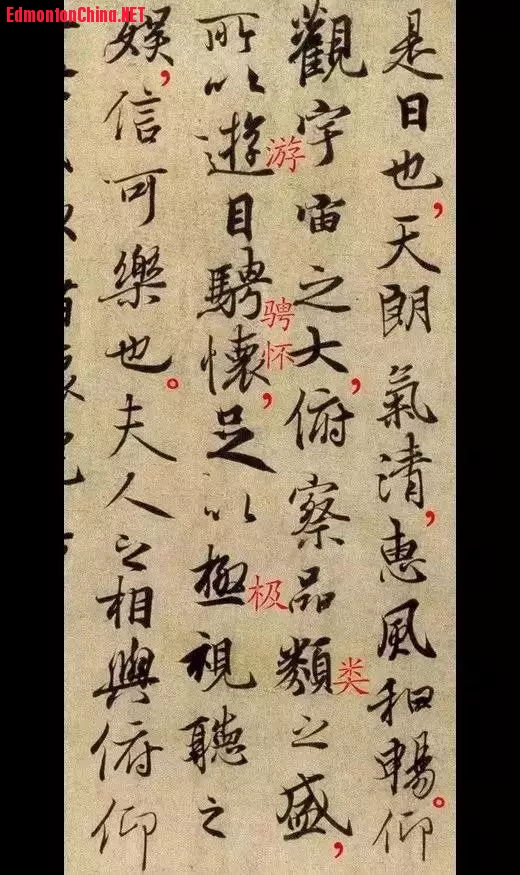 EdmontonChina.NET
是日也，天朗氣清，惠風和暢。仰
觀宇宙之大，俯察品類之盛，
类
所以遊目騁懷，足以極視聽之
游
骋怀
极
娛，信可樂也。夫人之相與俯仰